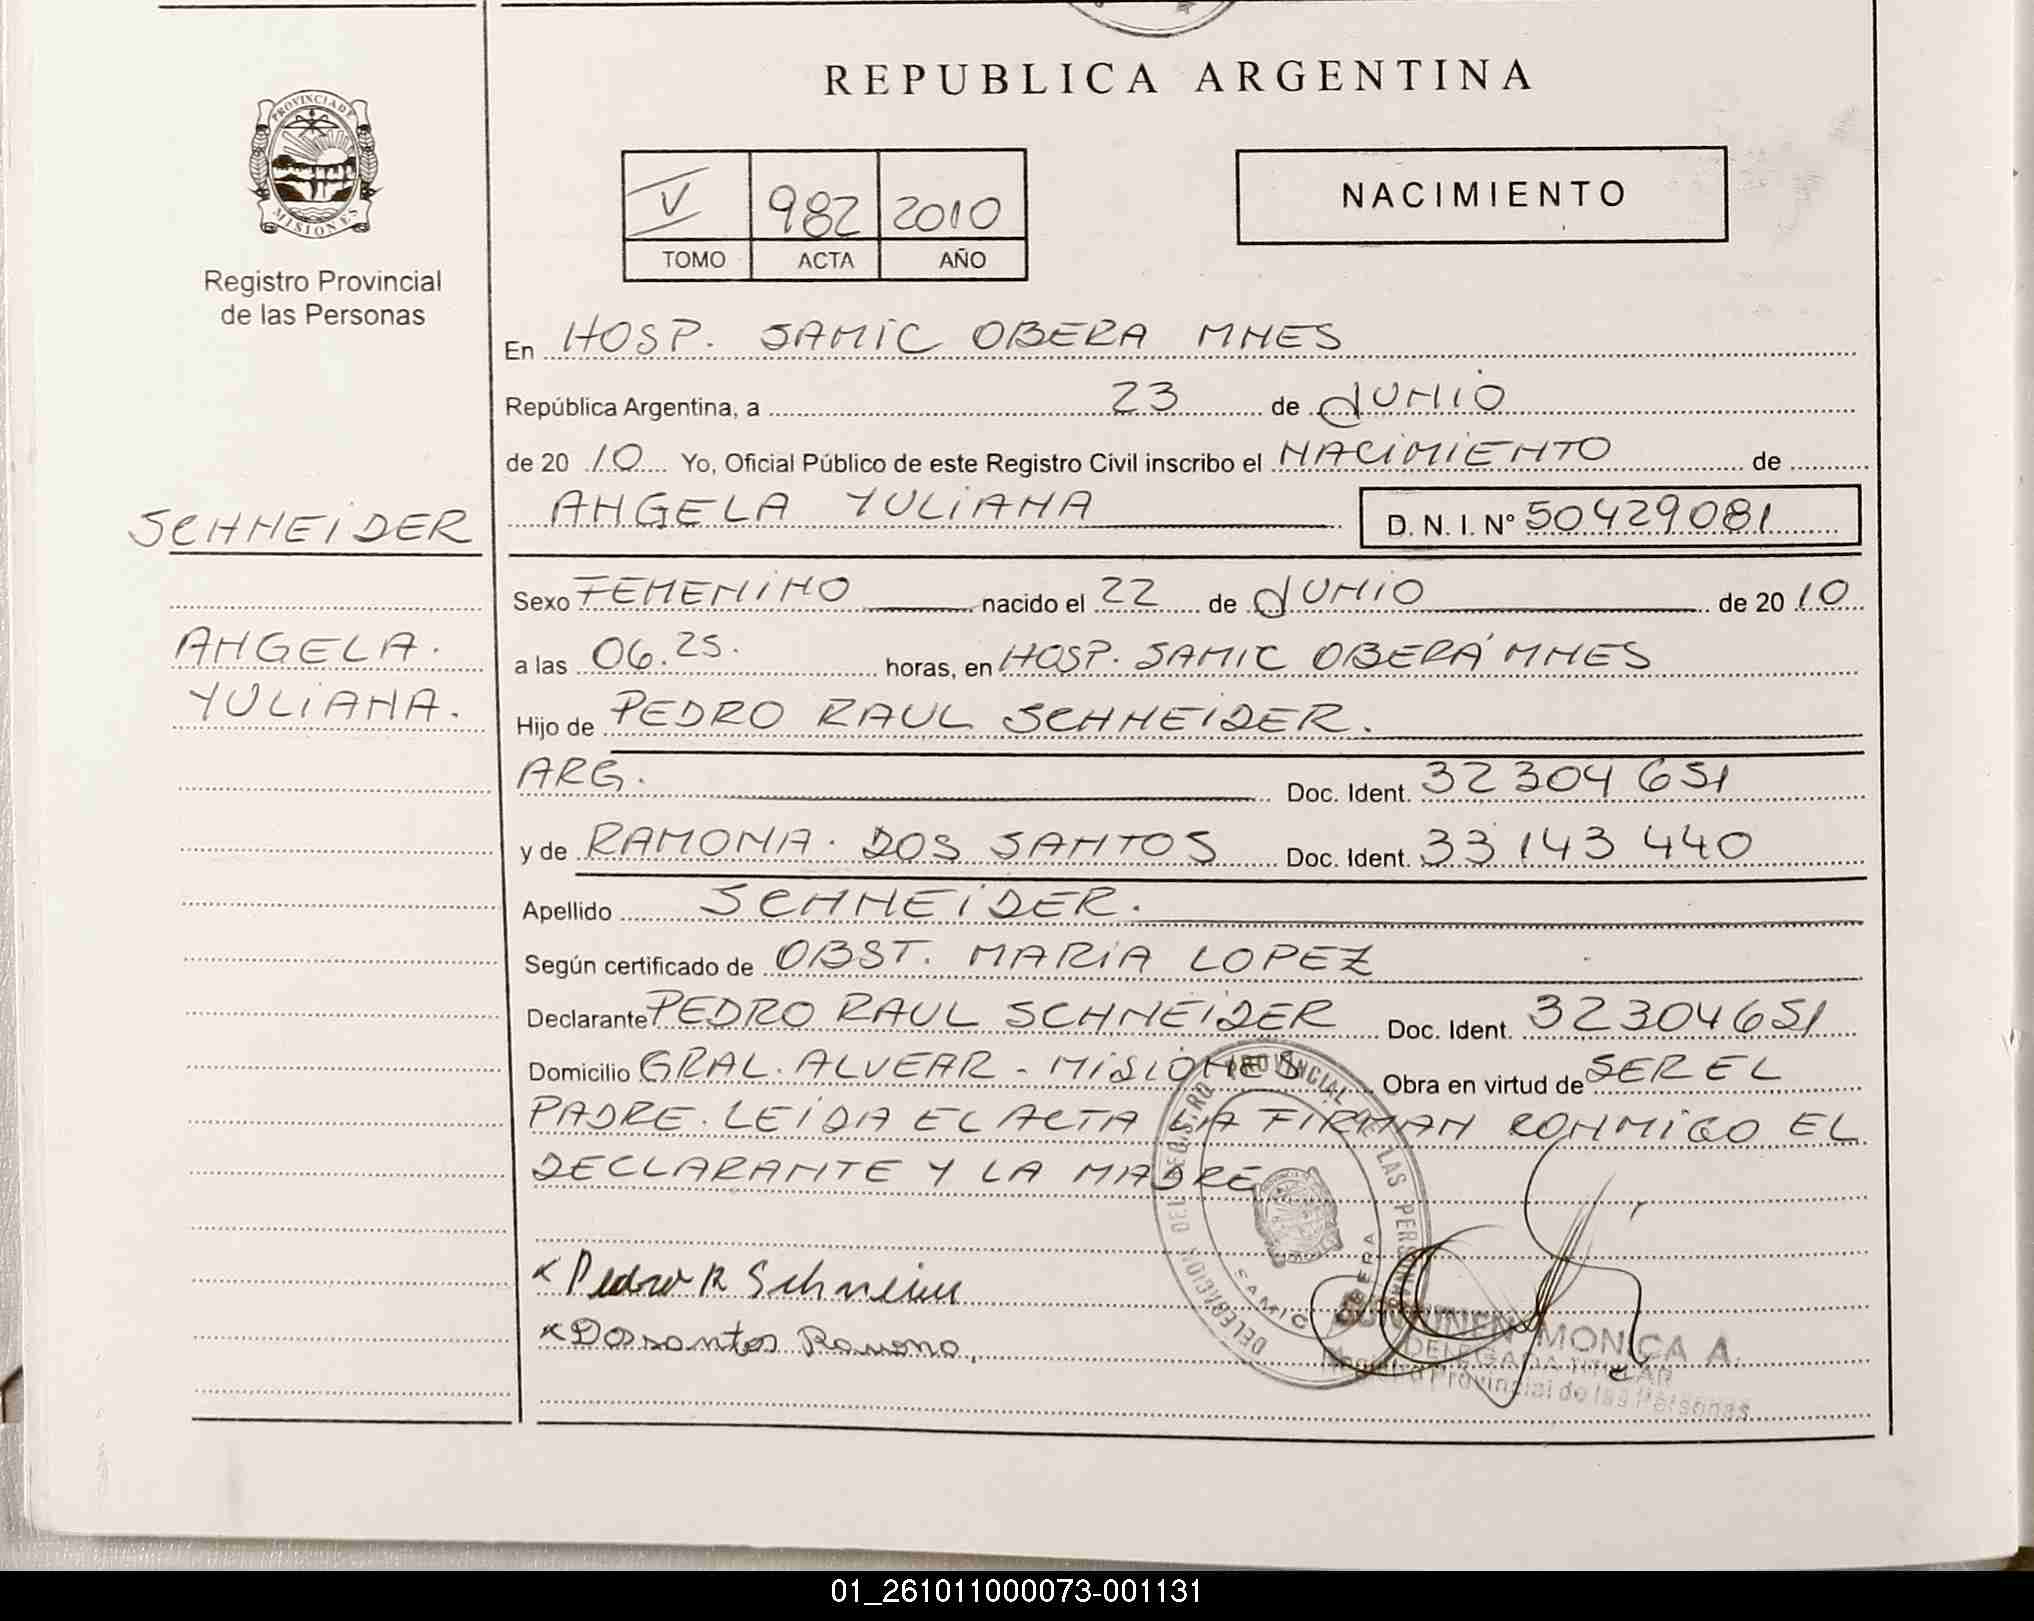 REPUBLICA ARGENTINA
PROVINCIA DE
MISIONES
Registro Provincial
de las Personas
V 982 2010
TOMO ACTA AÑO
NACIMIENTO
En HOSP. SAMIC OBERA MNES
República Argentina, a 23 de JUNIO
de 20 10 Yo, Oficial Público de este Registro Civil inscribo el NACIMIENTO de
SCHNEIDER
ANGELA YULIANA D. N. I. Nº 50429081
Sexo FEMENINO nacido el 22 de JUNIO de 20 10
ANGELA.
a las 06.25. horas, en HOSP. SAMIC OBERÁ MNES
YULIANA.
Hijo de PEDRO RAUL SCHNEIDER.
ARG. Doc. Ident. 32 304 651
y de RAMONA. DOS SANTOS Doc. Ident. 33 143 440
Apellido SCHNEIDER.
Según certificado de OBST. MARIA LOPEZ
Declarante PEDRO RAUL SCHNEIDER Doc. Ident. 32304651
Domicilio GRAL. ALVEAR - MISIONES Obra en virtud de SER EL
PADRE. LEIDA EL ACTA LA FIRMAN CONMIGO EL
DECLARANTE Y LA MADRE
DELEGACION DEL REGISTRO PROVINCIAL LAS PERSONAS
SAMIC OBERA
Pedro R Schneider
Dossantos Ramona,
MONICA A.
DELEGADA TITULAR
Registro Provincial de las Personas
01_261011000073-001131